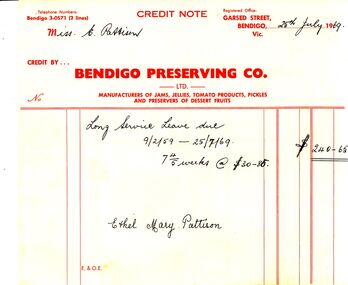 Telephone Numbers:
Bendigo 3-0571 (2 lines)
CREDIT NOTE
Registered Office:
GARSED STREET,
BENDIGO,
Vic.
25th July 1969.
Miss. E. Pattison
CREDIT BY...
BENDIGO PRESERVING CO.
LTD.
MANUFACTURERS OF JAMS, JELLIES, TOMATO PRODUCTS, PICKLES
AND PRESERVERS OF DESSERT FRUITS
No
Long Service Leave due
9/2/59 — 25/7/69.
7 4/5 weeks @ $30-85.
$ 240-65
Ethel Mary Pattison
E. & O.E.